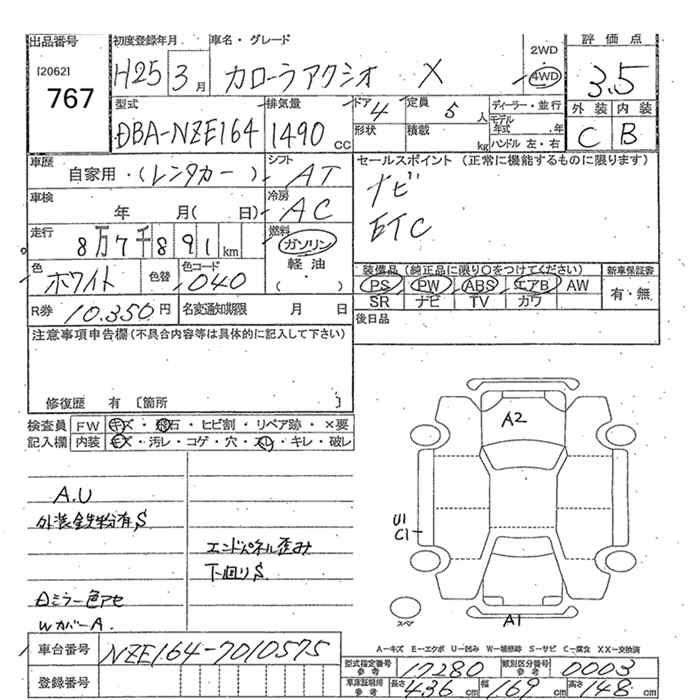 出品番号 初度登録年月 車名・グレード 2WD 評価点
[2062] H25 3月 カローラアクシオ X 4WD 3.5
767 型式 排気量 ドア 4 定員 5人 ディーラー・並行 外装 内装
DBA-NZE164 1490cc 形状 積載 kg モデル年式 年 C B
ハンドル 左・右
車歴 自家用・(レンタカー) シフト AT セールスポイント (正常に機能するものに限ります)
車検 年 月( 日) 冷房 AC ナビ
走行 8万7千891km 燃料 ガソリン ETC
色 ホワイト 色替 色コード 040 軽油 ( ・ )
装備品(純正品に限り○をつけてください) 新車保証書
PS PW ABS エアB AW 有・無
SR ナビ TV カワ
R券 10,350円 名変通知期限 月 日 後日品
注意事項申告欄(不具合内容等は具体的に記入して下さい)
修復歴 有 [箇所 ]
検査員 FW キズ・飛石・ヒビ割・リペア跡・×要
記入欄 内装 キズ・汚レ・コゲ・穴・スレ・キレ・破レ
A2
A.U
外装金属部分有,S
U1
C1
エンドパネル歪み
下回りS
スペア
A1
Wカバ-A.
A-キズ E-エクボ U-凹み W-補修跡 S-サビ C-腐食 XX-交換済
車台番号 NZE164-7010575
型式指定番号 参考 17280 類別区分番号 参考 0003
登録番号 車庫証明用 参考 長さ 436cm 幅 169cm 高さ 148cm